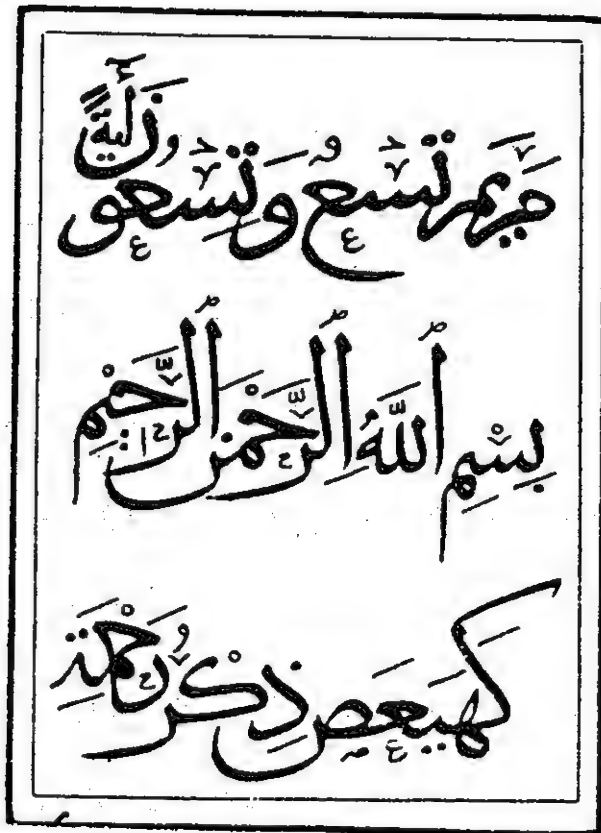 مَرْيَمَ تِسْعُ وَتِسْعُونَ أٰيَةً
بِسْمِ اللّٰهِ الرَّحْمٰنِ الرَّحِيْمِ
كٓهٰيٰعٓصٓ ذِكْرُ رَحْمَتِ